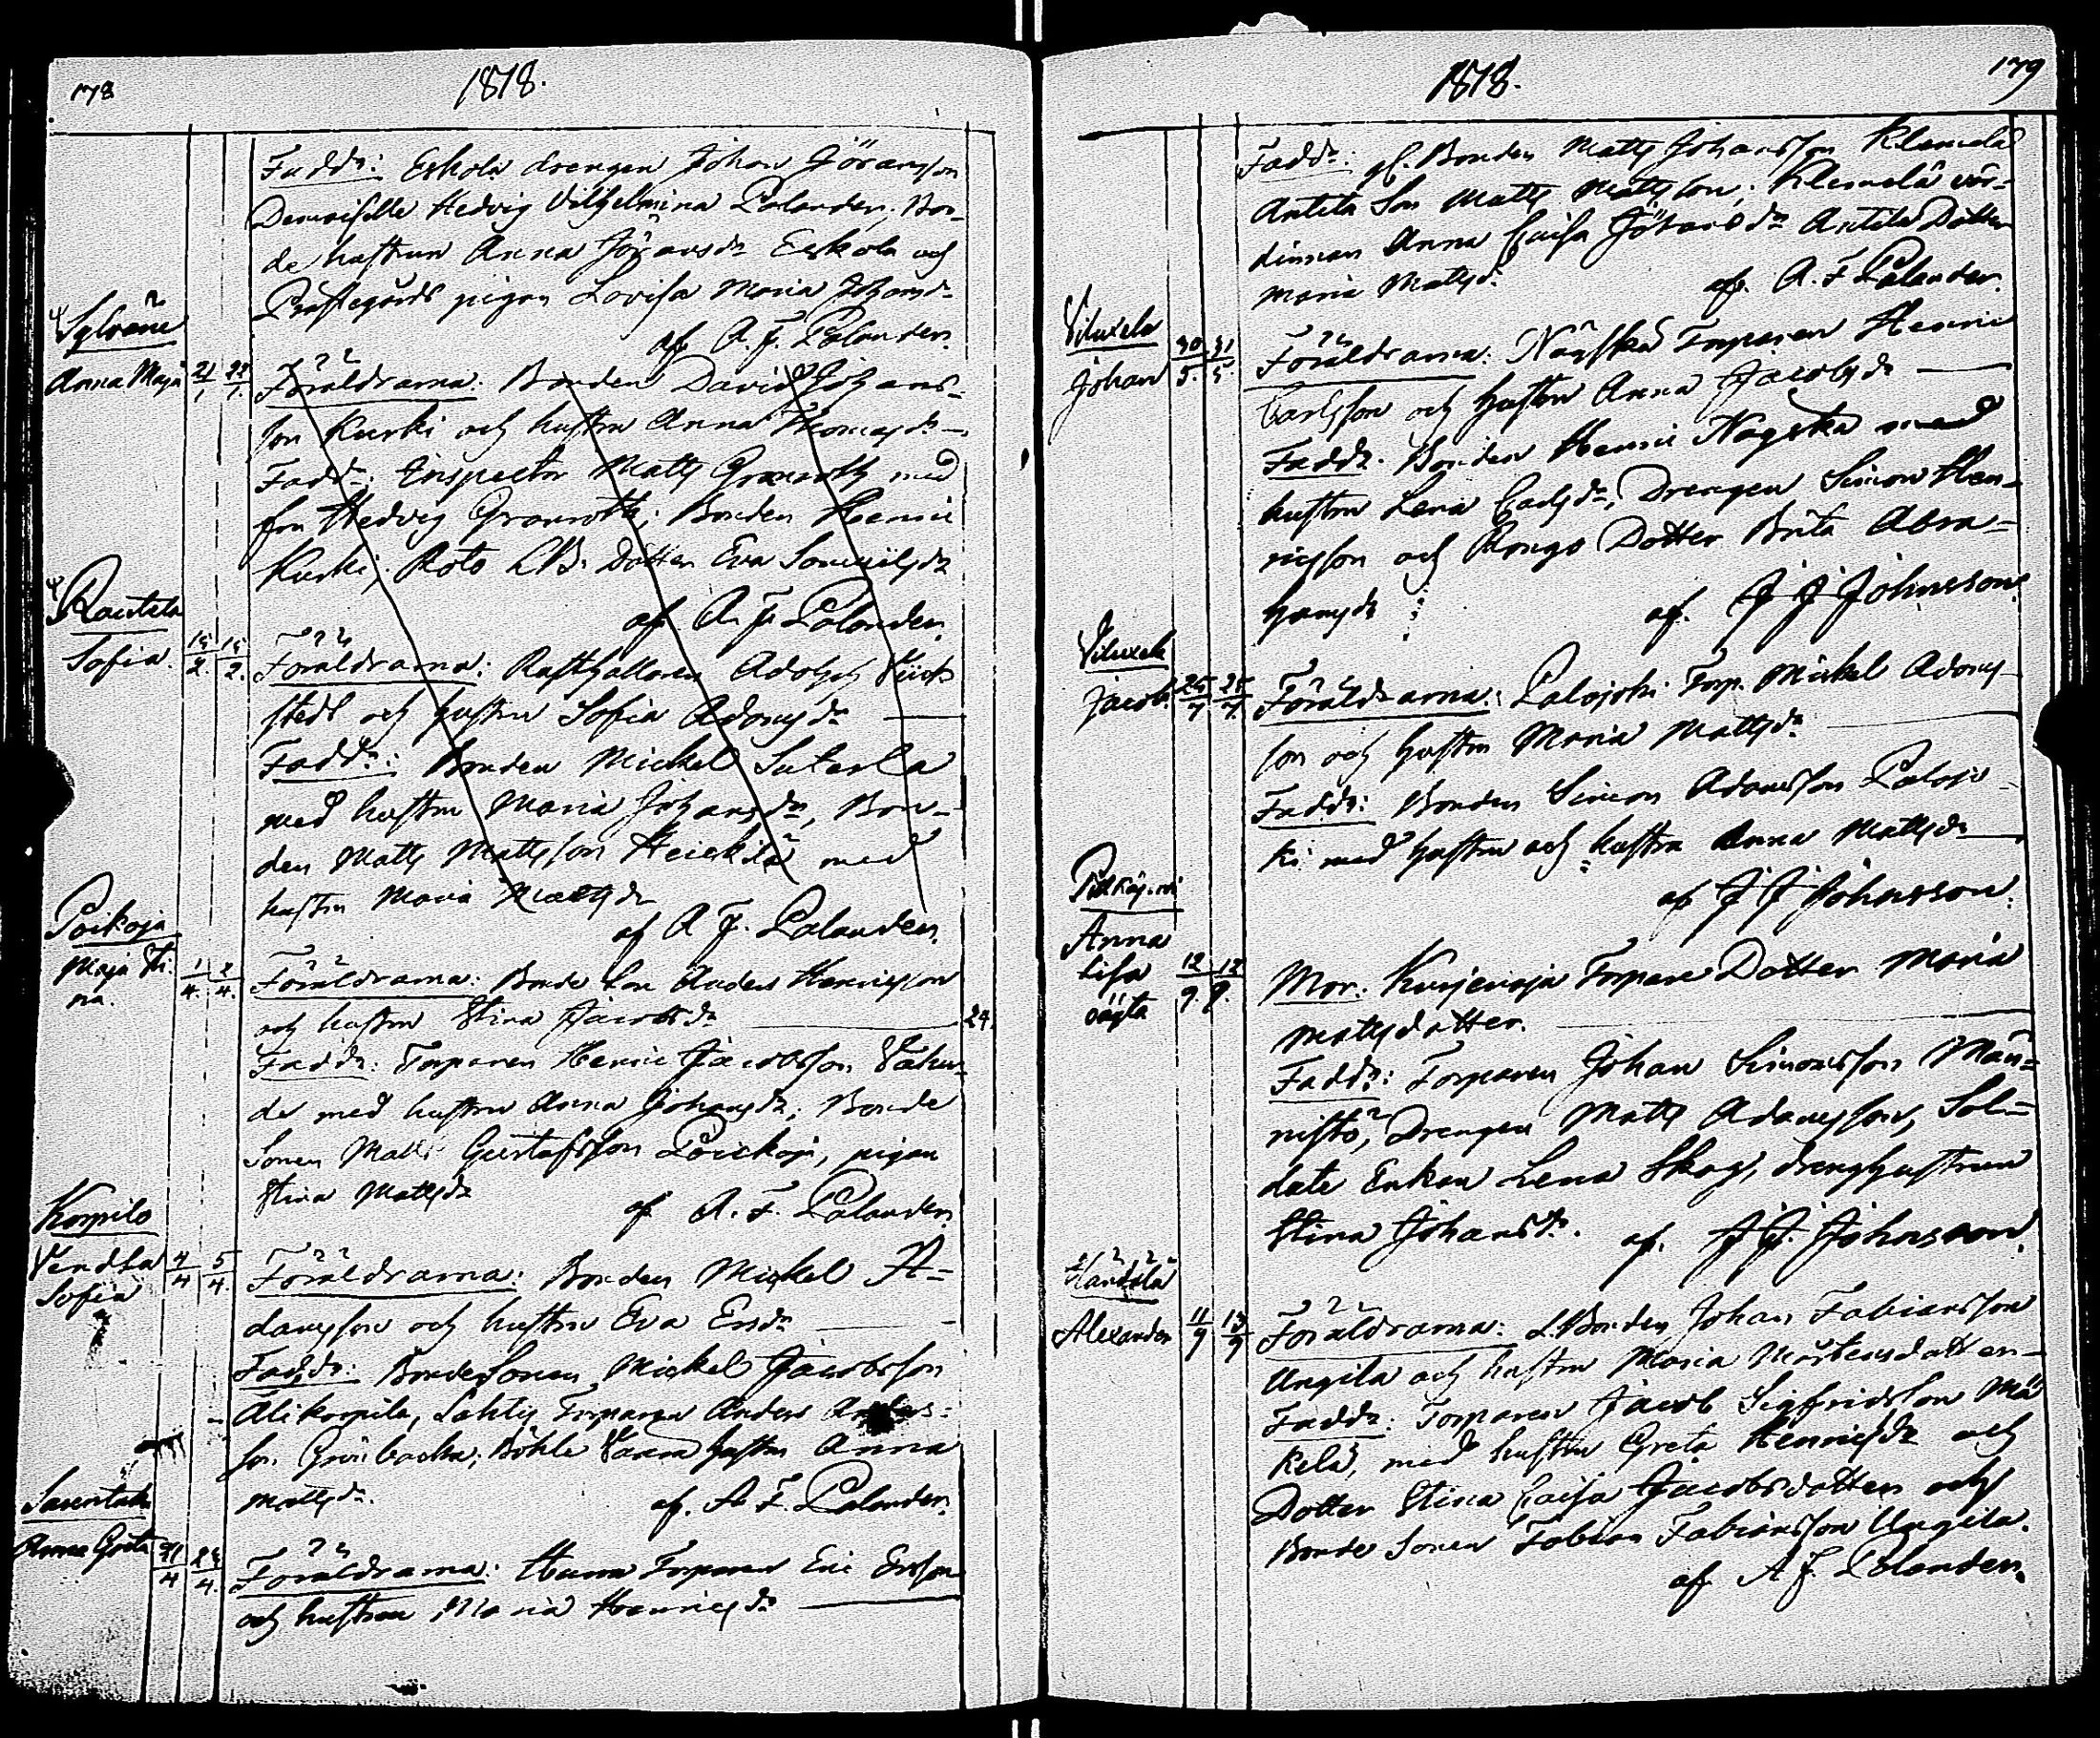 178
1818.
Fadd: Eskola drengen Johan Göransson
Demoiselle Hedvig Vilhelmina Palander, Bon-
de hustrun Anna Göransdr Eskola och
Prästegårds pigan Lovisa Maria Johansdr
af A. F. Palander.
Sylvänä
Anna Maja 21/1 22/1. Föräldrarna: Bonden David Johans-
son Kurki och hustru Anna Thomasdr —
Fadd: Inspector Matts Granroth med
fru Hedvig Granroth; Bonden Henric
Kurki; Roto LB. Dotter Eva Samuelsdr
af A. F. Palander.
Rautela
Sofia. 15/2. 15/2. Föräldrarna: Rusthållaren Adolph
stedt och hustru Sofia Adamsdr —
Fadd: Bonden Mickel Suterla
med hustru Maria Johansdr, Bon-
den Matts Mattsson Heickilä med
hustru Maria Mattsdr
af A. F. Palander.
Poikoja
Maja Sti-
na. 1/4. 2/4. Föräldrarna: Bonde Son Anders Henricsson
och hustru Stina Jacobsdr — 24.
Fadd: Torparen Henric Jacobsson
de med hustru Anna Johansdr; Bonde
Sonen Matts Gustafsson Poickoja, pigan
Stina Mattsdr
af A. F. Palander.
Korpilo
Vendla
Sofia 4/4 5/4. Föräldrarna: Bonden Mickel A-
damsson och hustru Eva Ersdr —
Fadd: Bonde Sonen Mickel Jacobsson
Alikorpila, Lahtis Torparen Anders Anders-
son Grönbacka, Böhle Vaara hustru Anna
Mattsdr. af. A. F. Palander.
Anna Greta 21/4 24/4. Föräldrarna: Torparen Eric Ersson
och hustrun Maria Henricsdr —
1818.
179
Fadd: gl. Bonden Matts Johansson Klemelä
Antila Son Matts Mattsson; Klemelä vär-
dinnan Anna Caisa Göransdr Antila Dotter
Maria Mattsdr. af. A. F. Palander.
Viluxela
Johan 30/5. 31/5. Föräldrarna: Någskä Torparen Henric
Carlsson och hustru Anna Jacobsdr —
Fadd: Bonden Henric Nagska med
hustru Lena Carlsdr, Drengen Simon Hen-
ricsson och Rongo Dotter Brita Abra-
hamsdr af. J J Johnsson.
Viluxela
Jacob 25/7 25/7 Föräldrarna: Palojoki Torp. Mickel Adams-
son och hustru Maria Mattsdr —
Fadd: Bonden Simon Adamsson Palojo-
ki med hustru och hustru Anna Mattsdr —
af J J Johnsson.
Anna
Lisa
oägta 12/9. 12/9. Mor: Torpare Dotter Maria
Mattsdotter. —
Fadd: Torparen Johan Simonsson Män-
nistö, Drengen Matts Adamsson, Sol-
date Enkan Lena Skog, drenghustrun
Stina Johansdr. af. J J. Johnsson.
Händälä
Alexander 11/9 13/9 Föräldrarna: L.Bonden Johan Fabiansson
Ungila och hustru Maria Mårtensdotter —
Fadd: Torparen Jacob Sigfridsson Mä-
kelä, med hustru Greta Henricsdr och
Dotter Stina Caisa Jacobsdotter och
Bonde Sonen Fabian Fabiansson Ungila.
af A F. Palander.